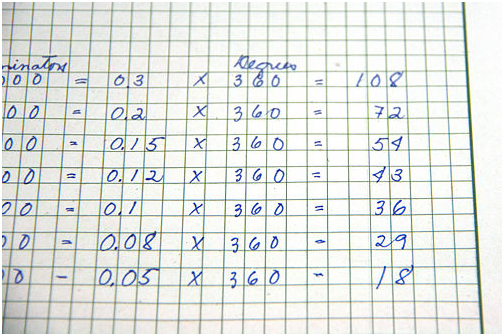 minators Degrees
000 = 0.3 X 360 = 108
00 = 0.2 X 360 = 72
00 = 0.15 X 360 = 54
00 = 0.12 X 360 = 43
00 = 0.1 X 360 = 36
00 = 0.08 X 360 = 29
00 = 0.05 X 360 = 18